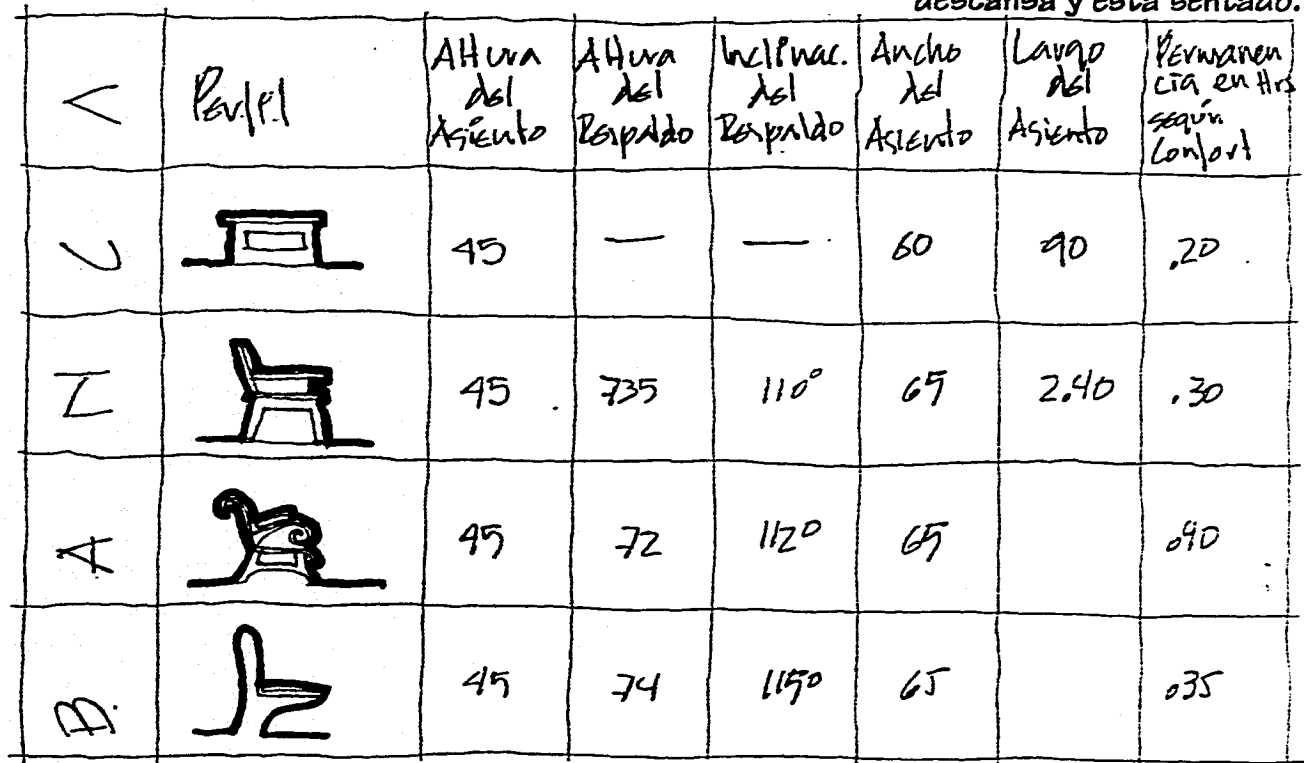 descansa y está sentado.
Perfil
Altura del Asiento
Altura del Respaldo
Inclinac. del Respaldo
Ancho del Asiento
Largo del Asiento
Permanencia en Hrs según Confort
45 — — 60 90 .20
45 735 110° 65 2.40 .30
45 72 112° 65 .40
45 74 115° 65 .35
B A N C A